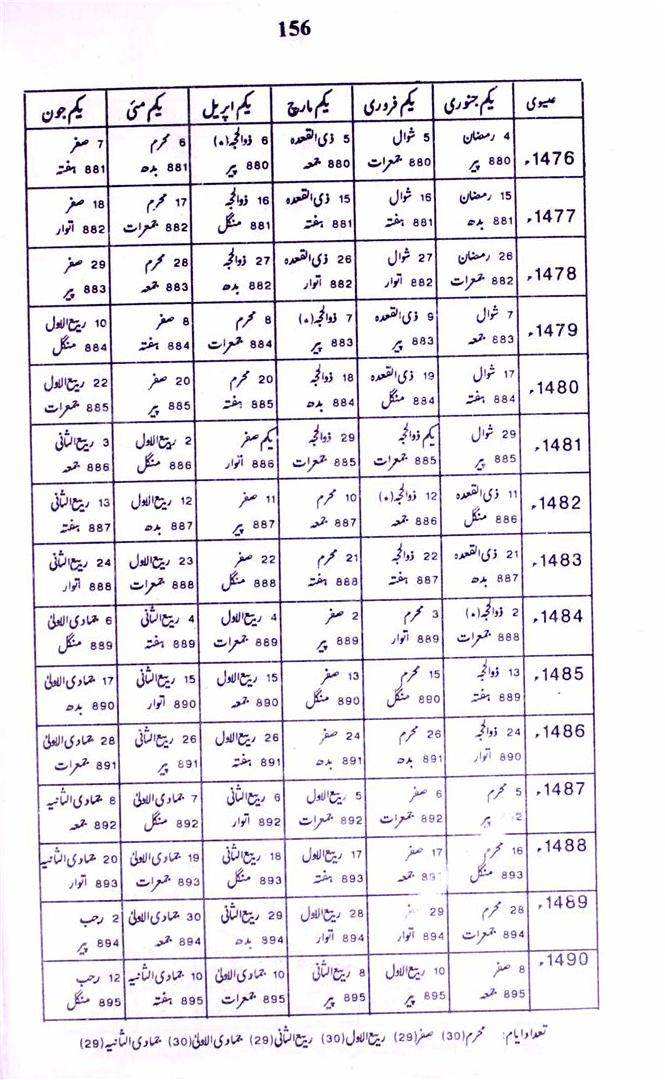 156
عیسوی یکم جنوری یکم فروری یکم مارچ یکم اپریل یکم مئی یکم جون
1476ء 4 رمضان 5 شوال 5 ذی القعدہ 6 ذوالحجہ (٭) 6 محرم 7 صفر
880 پیر 880 جمعرات 880 جمعہ 880 پیر 881 بدھ 881 ہفتہ
1477ء 15 رمضان 16 شوال 15 ذی القعدہ 16 ذوالحجہ 17 محرم 18 صفر
881 بدھ 881 ہفتہ 881 ہفتہ 881 منگل 882 جمعرات 882 اتوار
1478ء 26 رمضان 27 شوال 26 ذی القعدہ 27 ذوالحجہ 28 محرم 29 صفر
882 جمعرات 882 اتوار 882 اتوار 882 بدھ 883 جمعہ 883 پیر
1479ء 7 شوال 9 ذی القعدہ 7 ذوالحجہ (٭) 8 محرم 8 صفر 10 ربیع الاول
883 جمعہ 883 پیر 883 پیر 884 جمعرات 884 ہفتہ 884 منگل
1480ء 17 شوال 19 ذی القعدہ 18 ذوالحجہ 20 محرم 20 صفر 22 ربیع الاول
884 ہفتہ 884 منگل 884 بدھ 885 ہفتہ 885 پیر 885 جمعرات
1481ء 29 شوال یکم ذوالحجہ 29 ذوالحجہ یکم صفر 2 ربیع الاول 3 ربیع الثانی
885 پیر 885 جمعرات 885 جمعرات 886 اتوار 886 منگل 886 جمعہ
1482ء 11 ذی القعدہ 12 ذوالحجہ (٭) 10 محرم 11 صفر 12 ربیع الاول 13 ربیع الثانی
886 منگل 886 جمعہ 887 جمعہ 887 پیر 887 بدھ 887 ہفتہ
1483ء 21 ذی القعدہ 22 ذوالحجہ 21 محرم 22 صفر 23 ربیع الاول 24 ربیع الثانی
887 بدھ 887 ہفتہ 888 ہفتہ 888 منگل 888 جمعرات 888 اتوار
1484ء 2 ذوالحجہ (٭) 3 محرم 2 صفر 4 ربیع الاول 4 ربیع الثانی 6 جمادی الاولیٰ
888 جمعرات 889 اتوار 889 پیر 889 جمعرات 889 ہفتہ 889 منگل
1485ء 13 ذوالحجہ 15 محرم 13 صفر 15 ربیع الاول 15 ربیع الثانی 17 جمادی الاولیٰ
889 ہفتہ 890 منگل 890 منگل 890 جمعہ 890 اتوار 890 بدھ
1486ء 24 ذوالحجہ 26 محرم 24 صفر 26 ربیع الاول 26 ربیع الثانی 28 جمادی الاولیٰ
890 اتوار 891 بدھ 891 بدھ 891 ہفتہ 891 پیر 891 جمعرات
1487ء 5 محرم 6 صفر 5 ربیع الاول 6 ربیع الثانی 7 جمادی الاولیٰ 8 جمادی الثانیہ
پیر 892 جمعرات 892 جمعرات 892 اتوار 892 منگل 892 جمعہ
1488ء 16 محرم 17 صفر 17 ربیع الاول 18 ربیع الثانی 19 جمادی الاولیٰ 20 جمادی الثانیہ
893 منگل 893 جمعہ 893 ہفتہ 893 منگل 893 جمعرات 893 اتوار
1489ء 28 محرم 29 صفر 28 ربیع الاول 29 ربیع الثانی 30 جمادی الاولیٰ 2 رجب
894 جمعرات 894 اتوار 894 اتوار 894 بدھ 894 جمعہ 894 پیر
1490ء 8 صفر 10 ربیع الاول 8 ربیع الثانی 10 جمادی الاولیٰ 10 جمادی الثانیہ 12 رجب
895 جمعہ 895 پیر 895 پیر 895 جمعرات 895 ہفتہ 895 منگل
تعداد ایام: محرم (30) صفر (29) ربیع الاول (30) ربیع الثانی (29) جمادی الاولیٰ (30) جمادی الثانیہ (29)